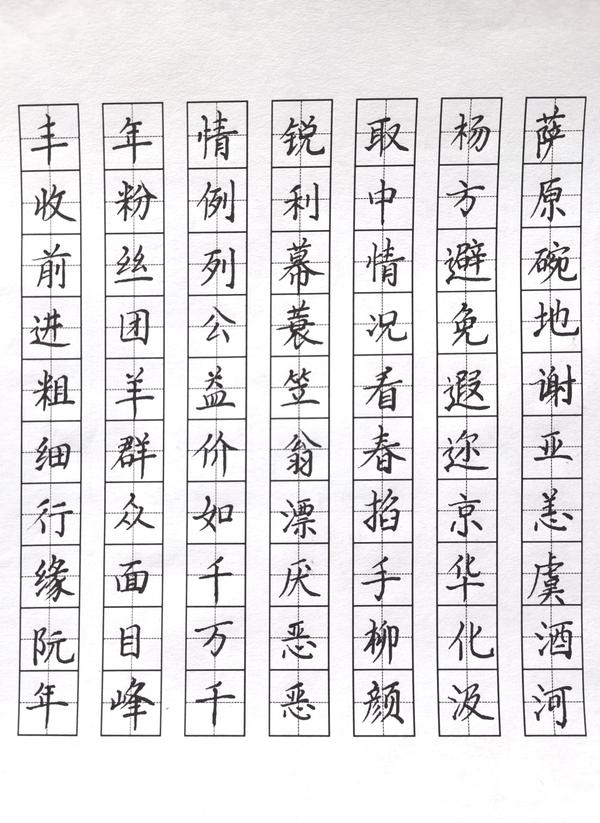 萨原碗地谢亚恙虞酒河
杨方避免遐迩京华化汲
取中情况看春掐手柳颜
锐利幕蓑笠翁漂厌恶恶
情例列公益价如千万千
年粉丝团羊群众面目峰
丰收前进粗细行缘阮年